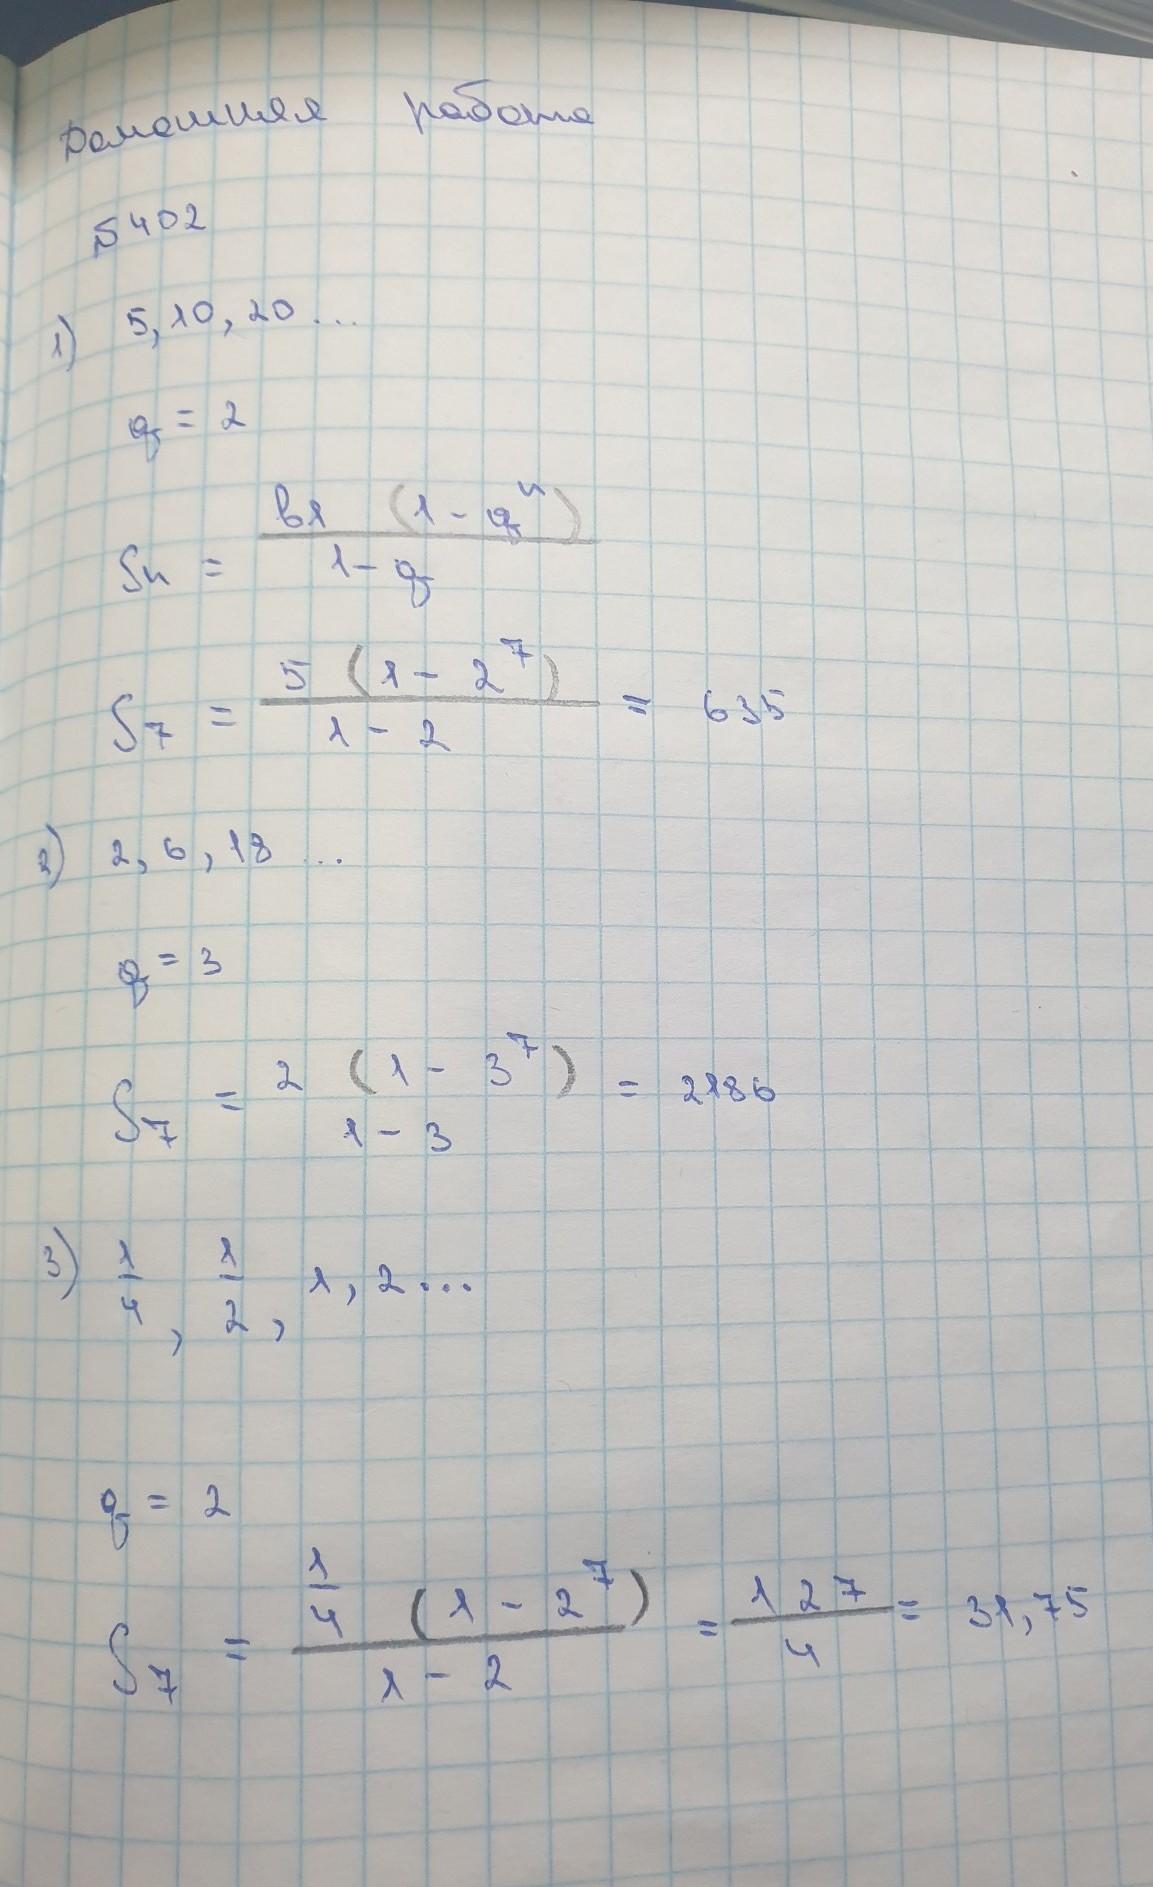 Домашняя работа
№ 402
1) 5, 10, 20 ...
q = 2
Sn = b1 (1 - q^n) / 1 - q
S7 = 5 (1 - 2^7) / 1 - 2 = 635
2) 2, 6, 18 ...
q = 3
S7 = 2 (1 - 3^7) 1 - 3 = 2186
3) 1/4, 1/2, 1, 2 ...
q = 2
S7 = 1/4 (1 - 2^7) / 1 - 2 = 127/4 = 31,75